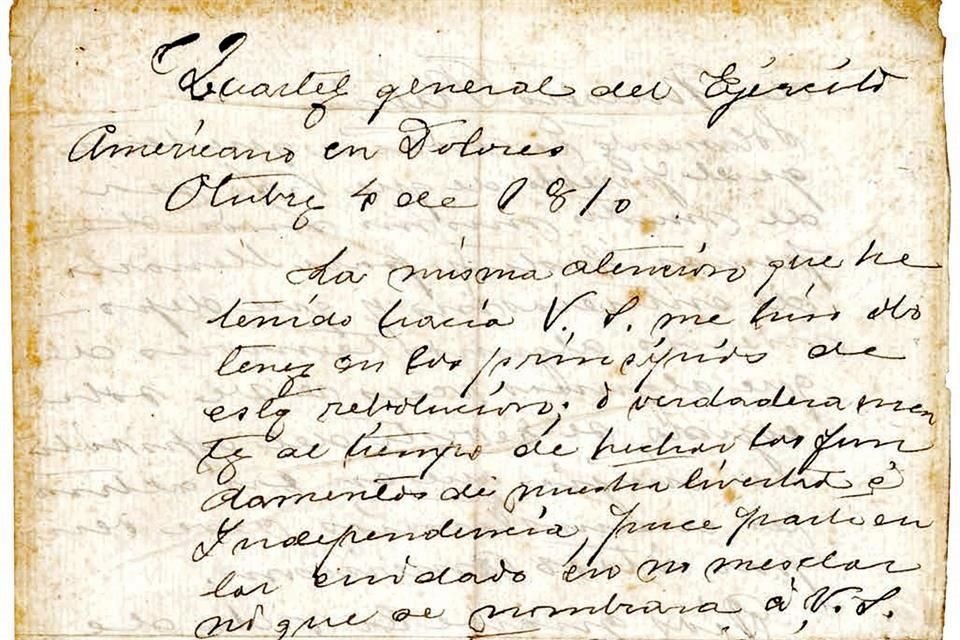 Quartel general del Ejército
Américano en Dolores
Otubre 4 de 1810
La misma atencion que he
tenido hacia V. S. me hiso ob
tener en los prinsípios de
esta rebolución; ó verdaderamen
te al tiempo de hechar los fun
damentos de nuestra livertad é
Independencia, puce particu
lar cuidado en no mesclar
ni que se nombrara á V. S.